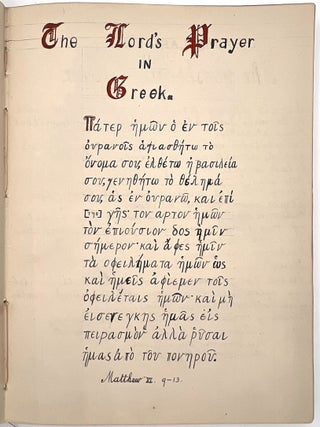 The Lord's Prayer
IN
Greek.
Πάτερ ἡμῶν ὁ ἐν τοῖς
οὐρανοῖς ἁγιασθήτω το
ὄνομα σου, ἐλθέτω ἡ βασιλεία
σου, γενηθήτω τὸ θέλημά
σου, ὡς ἐν οὐρανῶ, και ἐπὶ
[της] γῆς· τον αρτον ἡμῶν
τὸν ἐπιούσιον δος ἡμῖν
σήμερον· καὶ ἄφες ἡμῖν
τὰ οφειλήματα ἡμῶν ὡς
καὶ ἡμεῖς ἀφίεμεν τοῖς
ὀφειλέταις ἡμῶν· καὶ μὴ
εἰσενεγκης ἡμᾶς εἰς
πειρασμὸν ἀλλὰ ῥῦσαι
ἡμας ἀπὸ τοῦ πονηροῦ.
Matthew VI. 9-13.